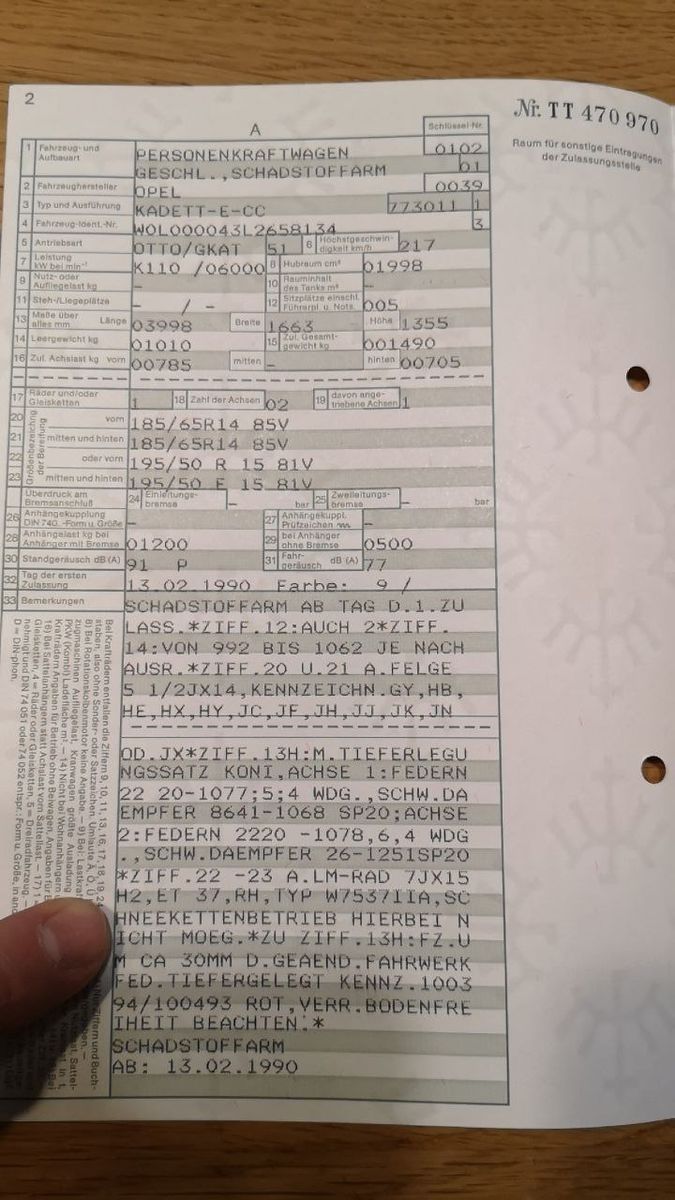 2
Nr. TT 470 970
Raum für sonstige Eintragungen
der Zulassungsstelle
A
Schlüssel-Nr.
1 Fahrzeug- und Aufbauart PERSONENKRAFTWAGEN 0102
GESCHL.,SCHADSTOFFARM 01
2 Fahrzeughersteller OPEL 0039
3 Typ und Ausführung KADETT-E-CC 773011 1
4 Fahrzeug-Ident.-Nr. WOL000043L2658134 3
5 Antriebsart OTTO/GKAT 51 6 Höchstgeschwindigkeit km/h 217
7 Leistung kW bei min⁻¹ K110 /06000 8 Hubraum cm³ 01998
9 Nutz- oder Aufliegelast kg – 10 Rauminhalt des Tanks m³ –
11 Steh-/Liegeplätze – / – 12 Sitzplätze einschl. Führerpl. u. Nots. 005
13 Maße über alles mm Länge 03998 Breite 1663 Höhe 1355
14 Leergewicht kg 01010 15 Zul. Gesamtgewicht kg 001490
16 Zul. Achslast kg vorn 00785 mitten – hinten 00705
17 Räder und/oder Gleisketten 1 18 Zahl der Achsen 02 19 davon angetriebene Achsen 1
Größenbezeichnung der Bereifung
20 vorn 185/65R14 85V
21 mitten und hinten 185/65R14 85V
22 oder vorn 195/50 R 15 81V
23 mitten und hinten 195/50 E 15 81V
Überdruck am Bremsanschluß 24 Einleitungsbremse – bar 25 Zweileitungsbremse – bar
26 Anhängekupplung DIN 740.. -Form u. Größe – 27 Anhängekuppl. Prüfzeichen –
28 Anhängelast kg bei Anhänger mit Bremse 01200 29 bei Anhänger ohne Bremse 0500
30 Standgeräusch dB (A) 91 P 31 Fahrgeräusch dB (A) 77
32 Tag der ersten Zulassung 13.02.1990 Farbe: 9 /
33 Bemerkungen SCHADSTOFFARM AB TAG D.1.ZU
LASS.*ZIFF.12:AUCH 2*ZIFF.
14:VON 992 BIS 1062 JE NACH
AUSR.*ZIFF.20 U.21 A.FELGE
5 1/2JX14,KENNZEICHN.GY,HB,
HE,HX,HY,JC,JF,JH,JJ,JK,JN
OD.JX*ZIFF.13H:M.TIEFERLEGU
NGSSATZ KONI,ACHSE 1:FEDERN
22 20-1077;5;4 WDG.,SCHW.DA
EMPFER 8641-1068 SP20;ACHSE
2:FEDERN 2220 -1078,6,4 WDG
.,SCHW.DAEMPFER 26-1251SP20
*ZIFF.22 -23 A.LM-RAD 7JX15
H2,ET 37,RH,TYP W7537IIA,SC
HNEEKETTENBETRIEB HIERBEI N
ICHT MOEG.*ZU ZIFF.13H:FZ.U
M CA 30MM D.GEAEND.FAHRWERK
FED.TIEFERGELEGT KENNZ.1003
94/100493 ROT,VERR.BODENFRE
IHEIT BEACHTEN.*
SCHADSTOFFARM
AB: 13.02.1990
Bei Krafträdern entfallen die Ziffern 9, 10, 11, 13, 16, 17, 18, 19, 24